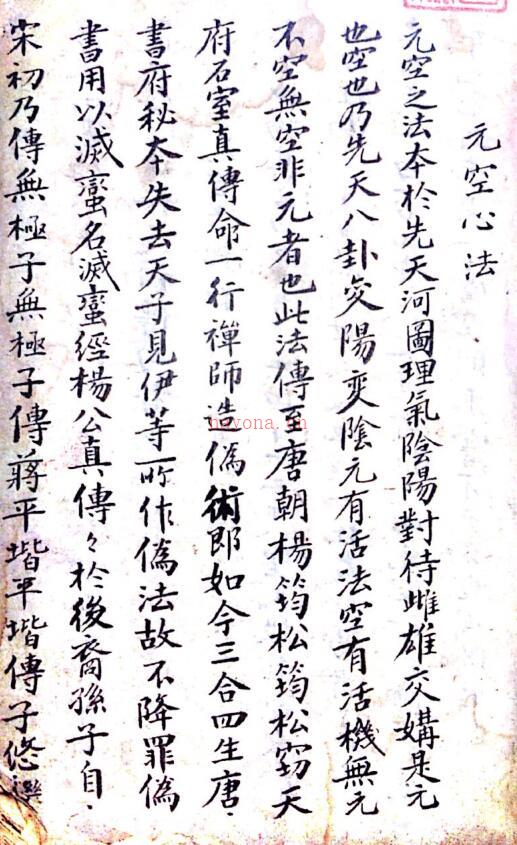 元空心法
元空之法本於先天河圖理氣陰陽對待雌雄交媾是元
也空也乃先天八卦爻陽変陰元有活法空有活機無元
不空無空非元者也此法傳至唐朝楊筠松筠松窃天
府石室真傳命一行禪師造偽術即如今三合四生唐、
書府秘本失去天子見伊等所作偽法故不降罪偽
書用以滅蛮名滅蛮經楊公真傳々於後裔孫子自、
宋初乃傳無極子無極子傳蒋平堦平堦傳子悠
hayona.cn